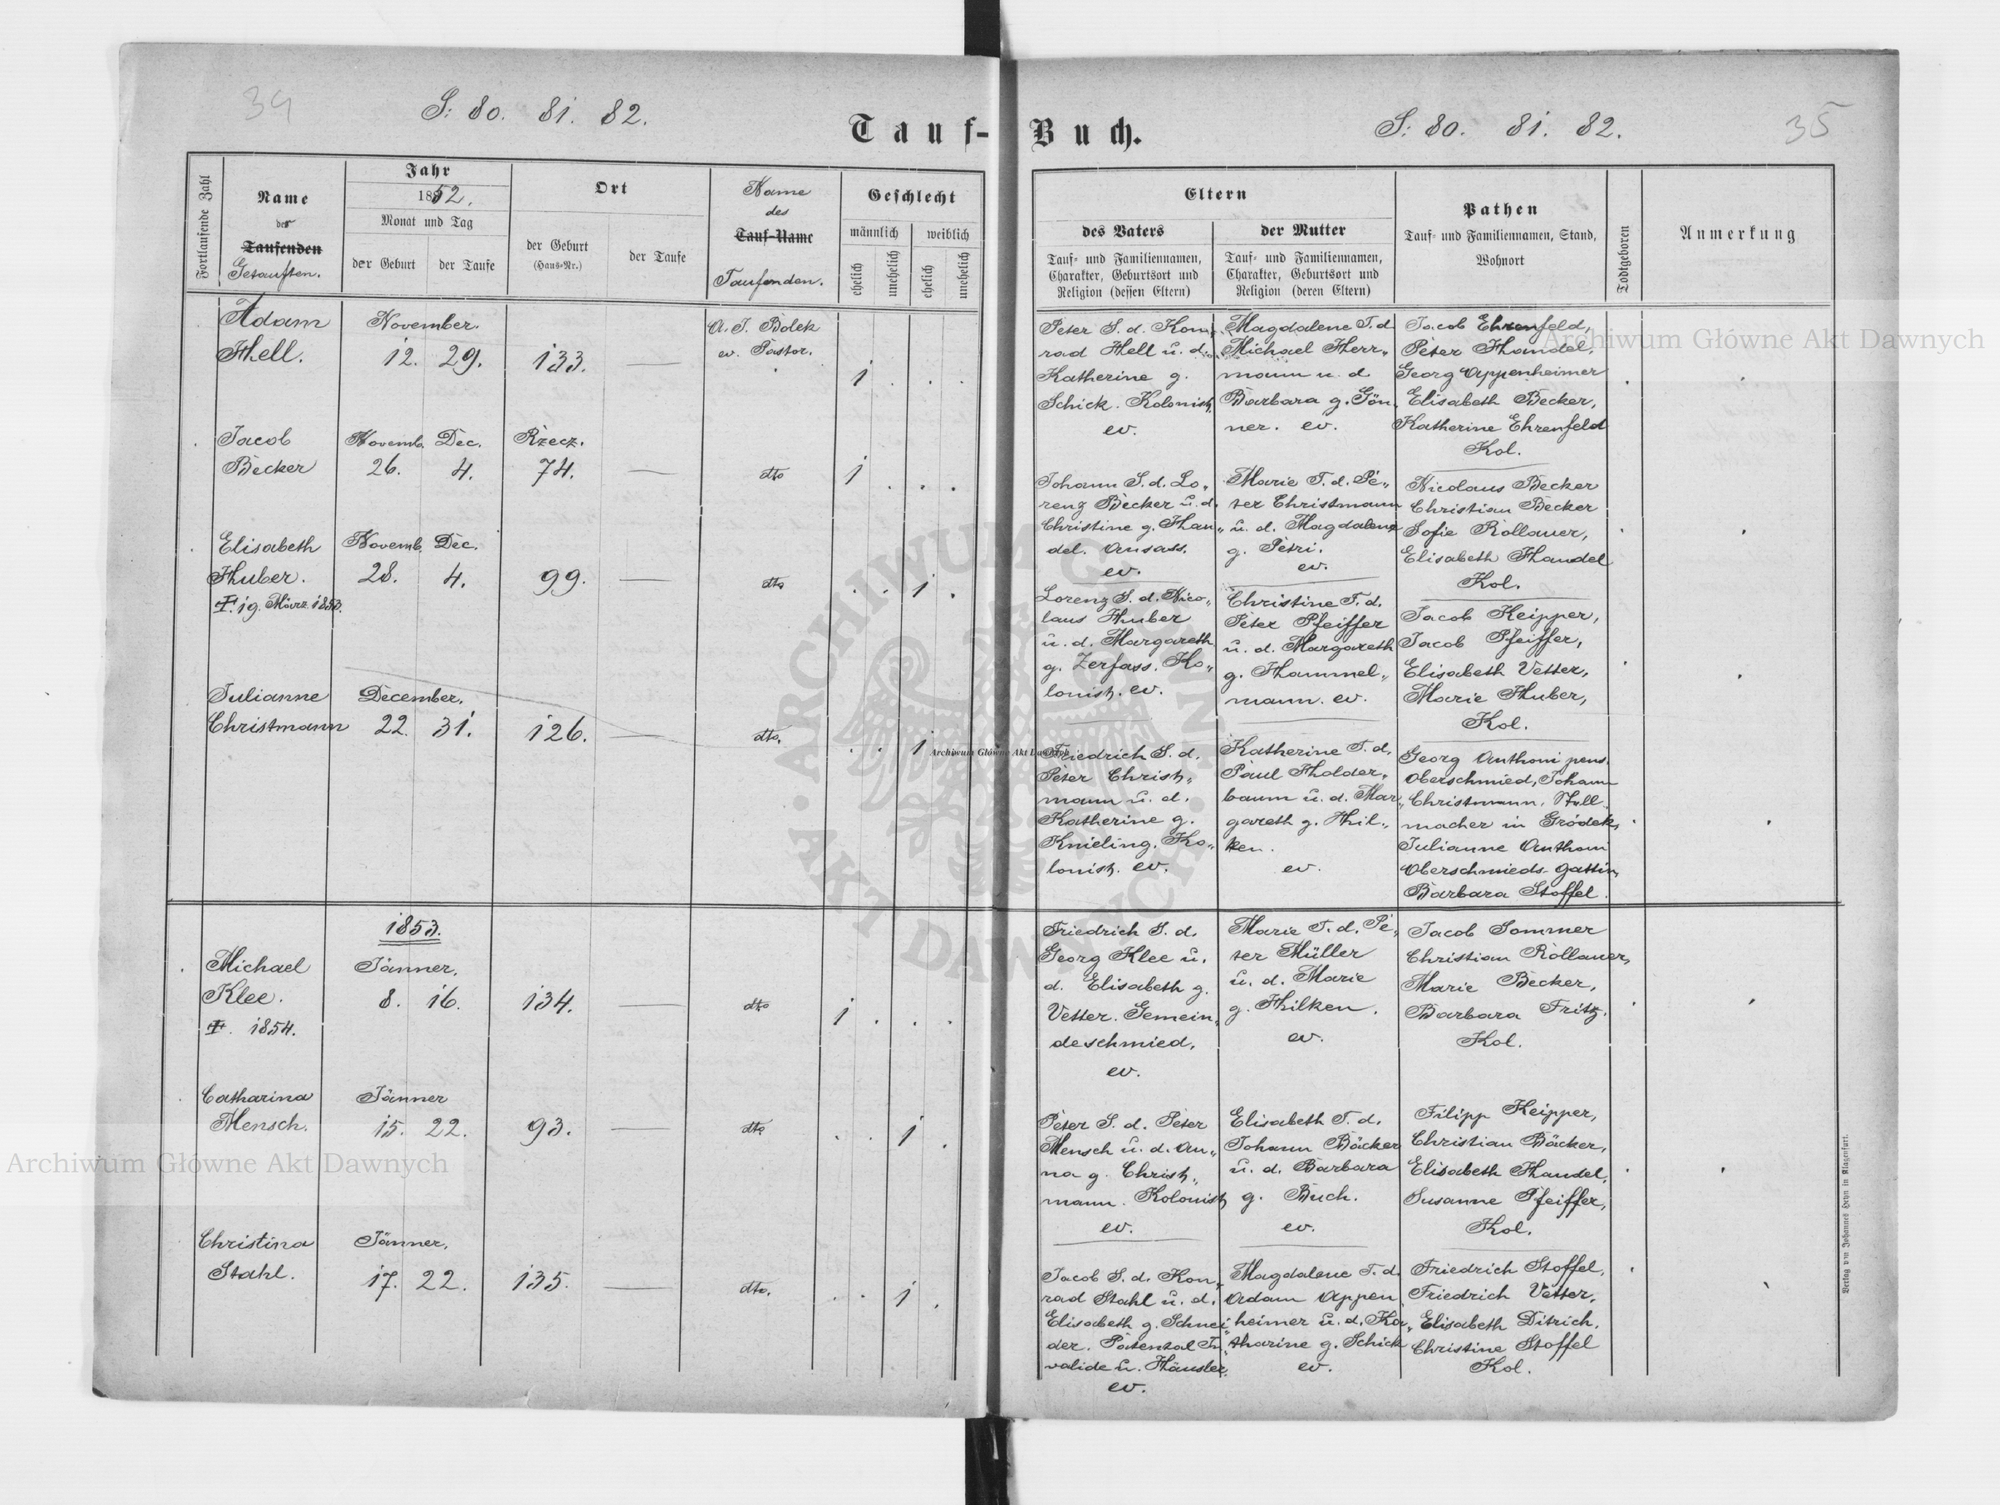 34
S: 80. 81. 82.
Tauf-
Fortlaufende Zahl
Name
des
Taufenden
Getauften.
Jahr
1852.
Monat und Tag
der Geburt
der Taufe
Ort
der Geburt
(Haus-Nr.)
der Taufe
Name
des
Tauf-Name
Taufenden.
Geschlecht
männlich
weiblich
ehelich
unehelich
ehelich
unehelich
Adam
Hell.
November.
12. 29. 133. —
A. J. Bolek
ev. Pastor.
1 . . .
Jacob
Becker
Novemb. Dec. Rzecz.
26. 4. 74. — dto 1 . . .
Elisabeth
Huber.
Novemb. Dec.
28. 4. 99. — dto . . 1 .
‡. 19. März 1853.
Julianne
Christmann
December.
22. 31. 126. — dto. . . 1
1853.
Michael
Klee.
Jänner.
8. 16. 134. — dto 1 . . .
‡. 1854.
Catharina
Mensch.
Jänner
15. 22. 93. — dto . . 1 .
Christina
Stahl.
Jänner.
17. 22. 135. — dto. . . 1 .
S: 80. 81. 82.
35
Buch.
Eltern
des Vaters
Tauf- und Familiennamen,
Charakter, Geburtsort und
Religion (dessen Eltern)
der Mutter
Tauf- und Familiennamen,
Charakter, Geburtsort und
Religion (deren Eltern)
Pathen
Tauf- und Familiennamen, Stand,
Wohnort
Todtgeboren
Anmerkung
Peter S. d. Kon„
rad Hell u. d.
Katherine g.
Schick. Kolonist,
ev.
Magdalene T. d
Michael Herr„
mann u. d
Barbara g. Gön„
ner. ev.
Jacob Ehrenfeld,
Peter Handel,
Georg Appenheimer
Elisabeth Becker,
Katherine Ehrenfeld
Kol.
Johann S. d. Lo„
renz Becker u. d.
Christine g. Han„
del. Ansass.
ev.
Marie T. d. Pe„
ter Christmann
u. d. Magdalene
g. Petri.
ev.
Nicolaus Becker
Christian Becker
Sofie Rollauer,
Elisabeth Handel
Kol.
Lorenz S. d. Nico„
laus Huber
u. d. Margareth
g. Zerfass. Ko„
lonist. ev.
Christine T. d.
Peter Pfeiffer
u. d. Margareth
g. Hammel„
mann. ev.
Jacob Keipper,
Jacob Pfeiffer,
Elisabeth Vetter,
Marie Huber,
Kol.
Friedrich S. d.
Peter Christ„
mann u. d.
Katherine g.
Knieling. Ko„
lonist. ev.
Katherine T. d.
Paul Holder„
baum u. d. Mar„
gareth g. Hil„
ken.
ev.
Georg Anthoni pens.
Oberschmied, Johann
Christmann, Stell„
macher in Gródek,
Julianne Anthoni
Oberschmieds-gattin,
Barbara Stoffel.
Friedrich S. d.
Georg Klee u.
d. Elisabeth g.
Vetter. Gemein„
deschmied.
ev.
Marie T. d. Pe„
ter Müller
u. d. Marie
g. Hilken.
ev.
Jacob Sommer
Christian Rollauer,
Marie Becker,
Barbara Fritz.
Kol.
Peter S. d. Peter
Mensch u. d. An„
na g. Christ„
mann. Kolonist,
ev.
Elisabeth T. d.
Johann Bäcker
u. d. Barbara
g. Buch.
ev.
Filipp Keipper,
Christian Bäcker,
Elisabeth Handel,
Susanne Pfeiffer,
Kol.
Jacob S. d. Kon„
rad Stahl u. d.
Elisabeth g. Schnei„
der. Patental In„
valide u. Häusler.
ev.
Magdalene T. d.
Adam Appen„
heimer u. d. Ka„
tharine g. Schick
ev.
Friedrich Stoffel,
Friedrich Vetter,
Elisabeth Ditrich,
Christine Stoffel
Kol.
Verlag von Johannes Heyn in Klagenfurt.
Archiwum Główne Akt Dawnych
Archiwum Główne Akt Dawnych
Archiwum Główne Akt Dawnych
ARCHIWUM GŁÓWNE AKT DAWNYCH